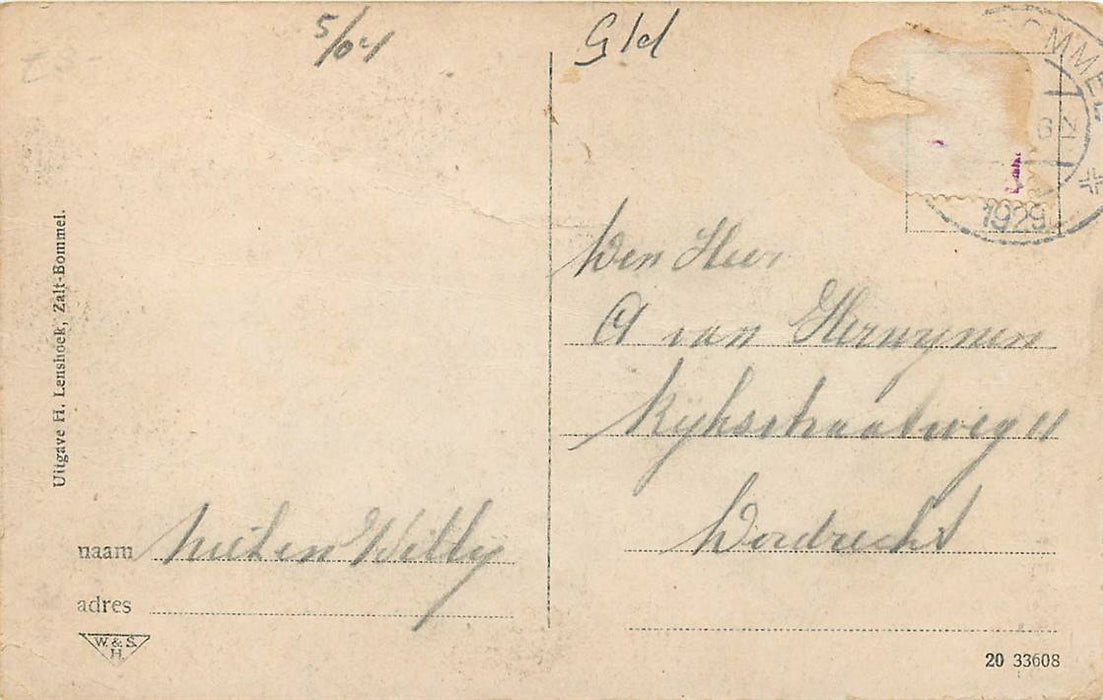 5/04
Gld
OMMEL
1929
Uitgave H. Lenshoek, Zalt-Bommel.
Den Heer
A van Herwynen
Rijksstraatweg 11
Dordrecht
naam Willy
adres
W. & S.
H.
20 33608